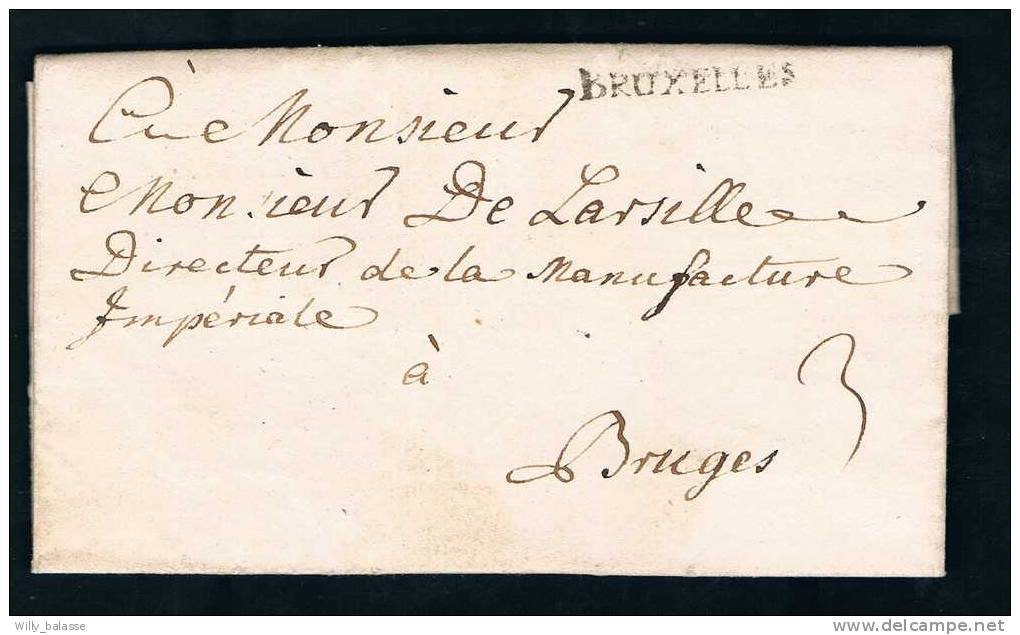 BRUXELLES
A Monsieur
Monsieur De Larsille
Directeur de la Manufacture
Impériale
à
3
Bruges
Willy_balasse
www.delcampe.net